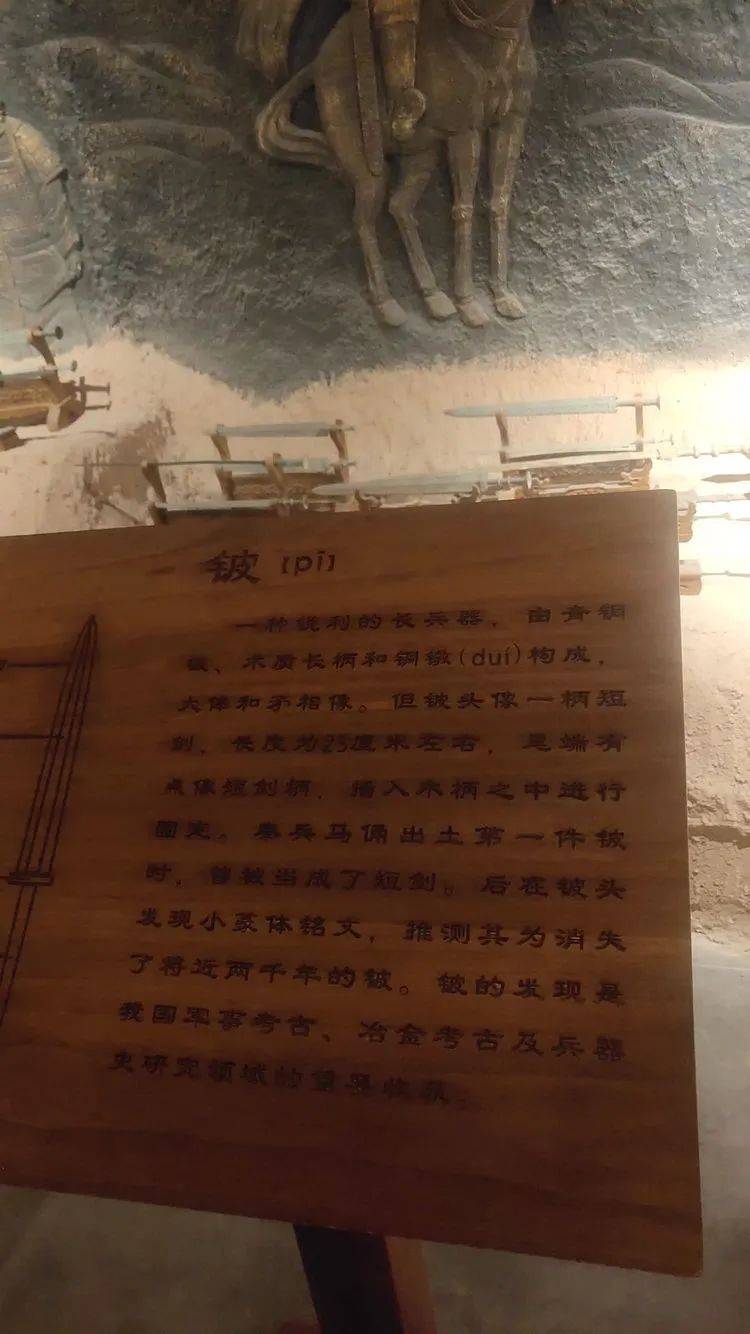 铍【pī】
一种锐利的长兵器，由青铜
铍、木质长柄和铜镦(duì)构成，
大体和矛相像。但铍头像一柄短
剑，长度为25厘米左右，尾端有
点像短剑柄，插入木柄之中进行
固定。秦兵马俑出土第一件铍
时，曾被当成了短剑。后在铍头
发现小篆体铭文，推测其为消失
了将近两千年的铍。铍的发现是
我国军事考古、冶金考古及兵器
史研究领域的重要收获。